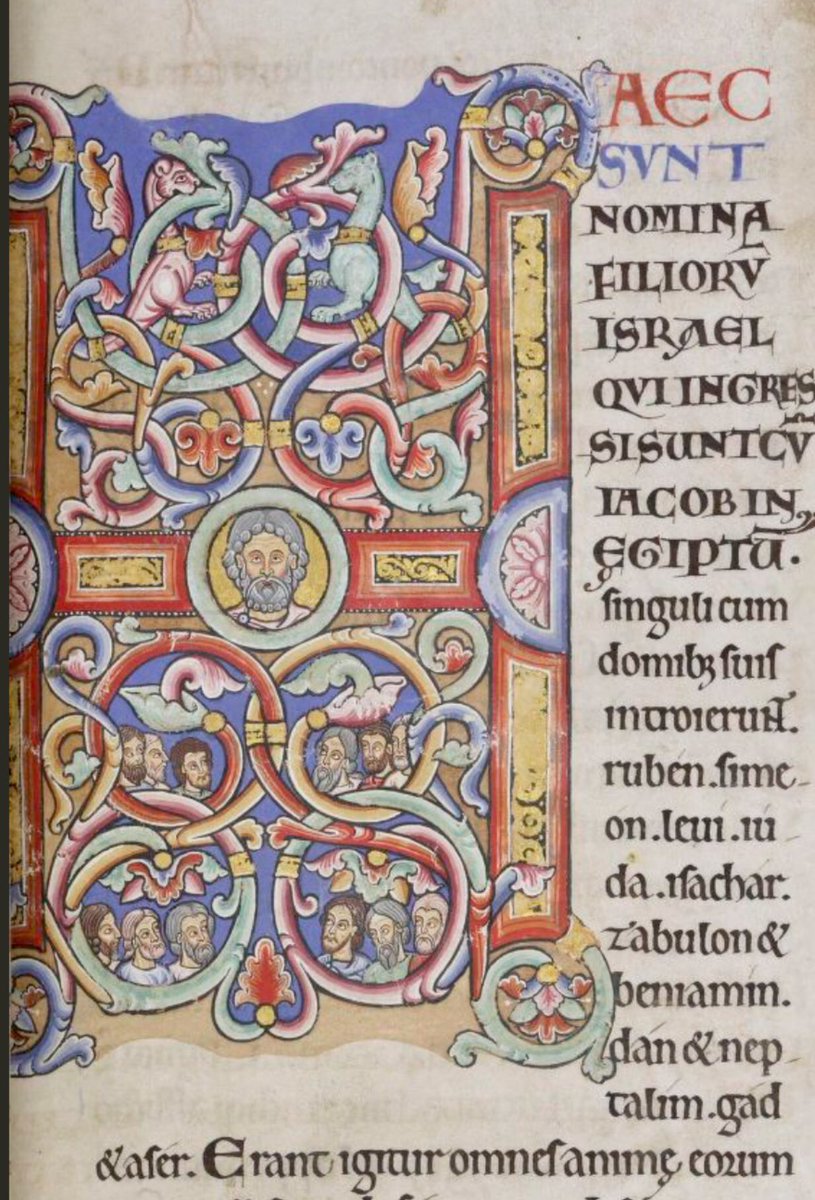 HAEC
SVNT
NOMINA
FILIORV̄
ISRAEL
QVI INGRES
SI SUNT CV̄
IACOB IN
ĘGIPTU̅.
singuli cum
domibꝫ suis
introierunt.
ruben. sime-
on. leui. iu-
da. isachar.
zabulon &
beniamin.
dan & nep
talim. gad
& aser. Erant igitur omnes animę eorum